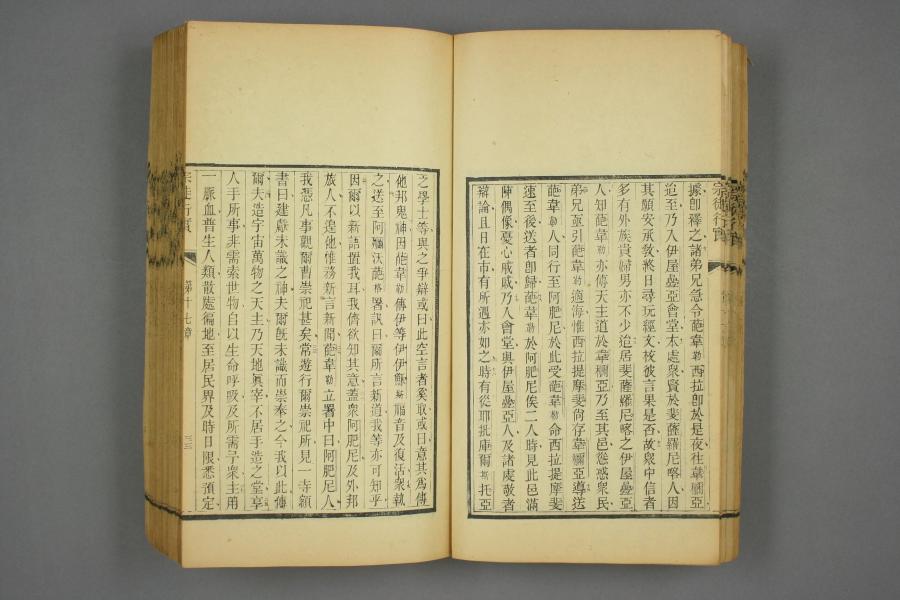 宗徒行實
據卽釋之諸弟兄急令葩韋勒西拉卽於是夜往韋爾亞
迨至乃入伊屋疊亞會堂本處衆賢於斐薩羅尼喀人因
其願安承教將日尋玩經文校彼言果是否故衆中信者
多有外族貴婦男亦不少迨居斐薩羅尼喀之伊屋疊亞
人知葩韋勒亦傳天主道於韋爾亞乃至其邑慫惑衆民
弟兄亟引葩韋勒適海惟西拉提摩斐尙存韋爾亞導送
葩韋勒人同行至阿肥尼於此受葩韋勒命西拉提摩斐
速至後送者卽歸葩韋勒於阿肥尼俟二人時見此邑滿
陣偶像憂心戚戚乃入會堂與伊屋疊亞人及諸虔敬者
辯論且日在市有所遇亦如之時有從耶批庫爾斯托亞
之學士等與之爭辯或曰此空言者奚取或曰意其爲傳
他邦鬼神因葩韋勒傳伊等伊伊穌斯福音及復活衆執
之送至阿爾沃葩格署訊曰爾所言新道我等亦可知乎
因爾以新語置我耳我儕欲知其意蓋衆阿肥尼及外邦
族人不遑他惟務新言新聞葩韋勒立署中曰阿肥尼人
我憑凡事觀爾曹崇祀甚矣常遊行爾崇祀所見一寺額
書曰建獻未識之神夫爾旣未識而崇奉之今我以此傳
爾夫造宇宙萬物之天主乃天地眞宰不居手造之堂享
人手所事非需索世物自以生命呼吸及所需予衆主用
一脈血普生人類散處徧地至居民界及時日限悉預定
宗徒行實
第十七章
三三